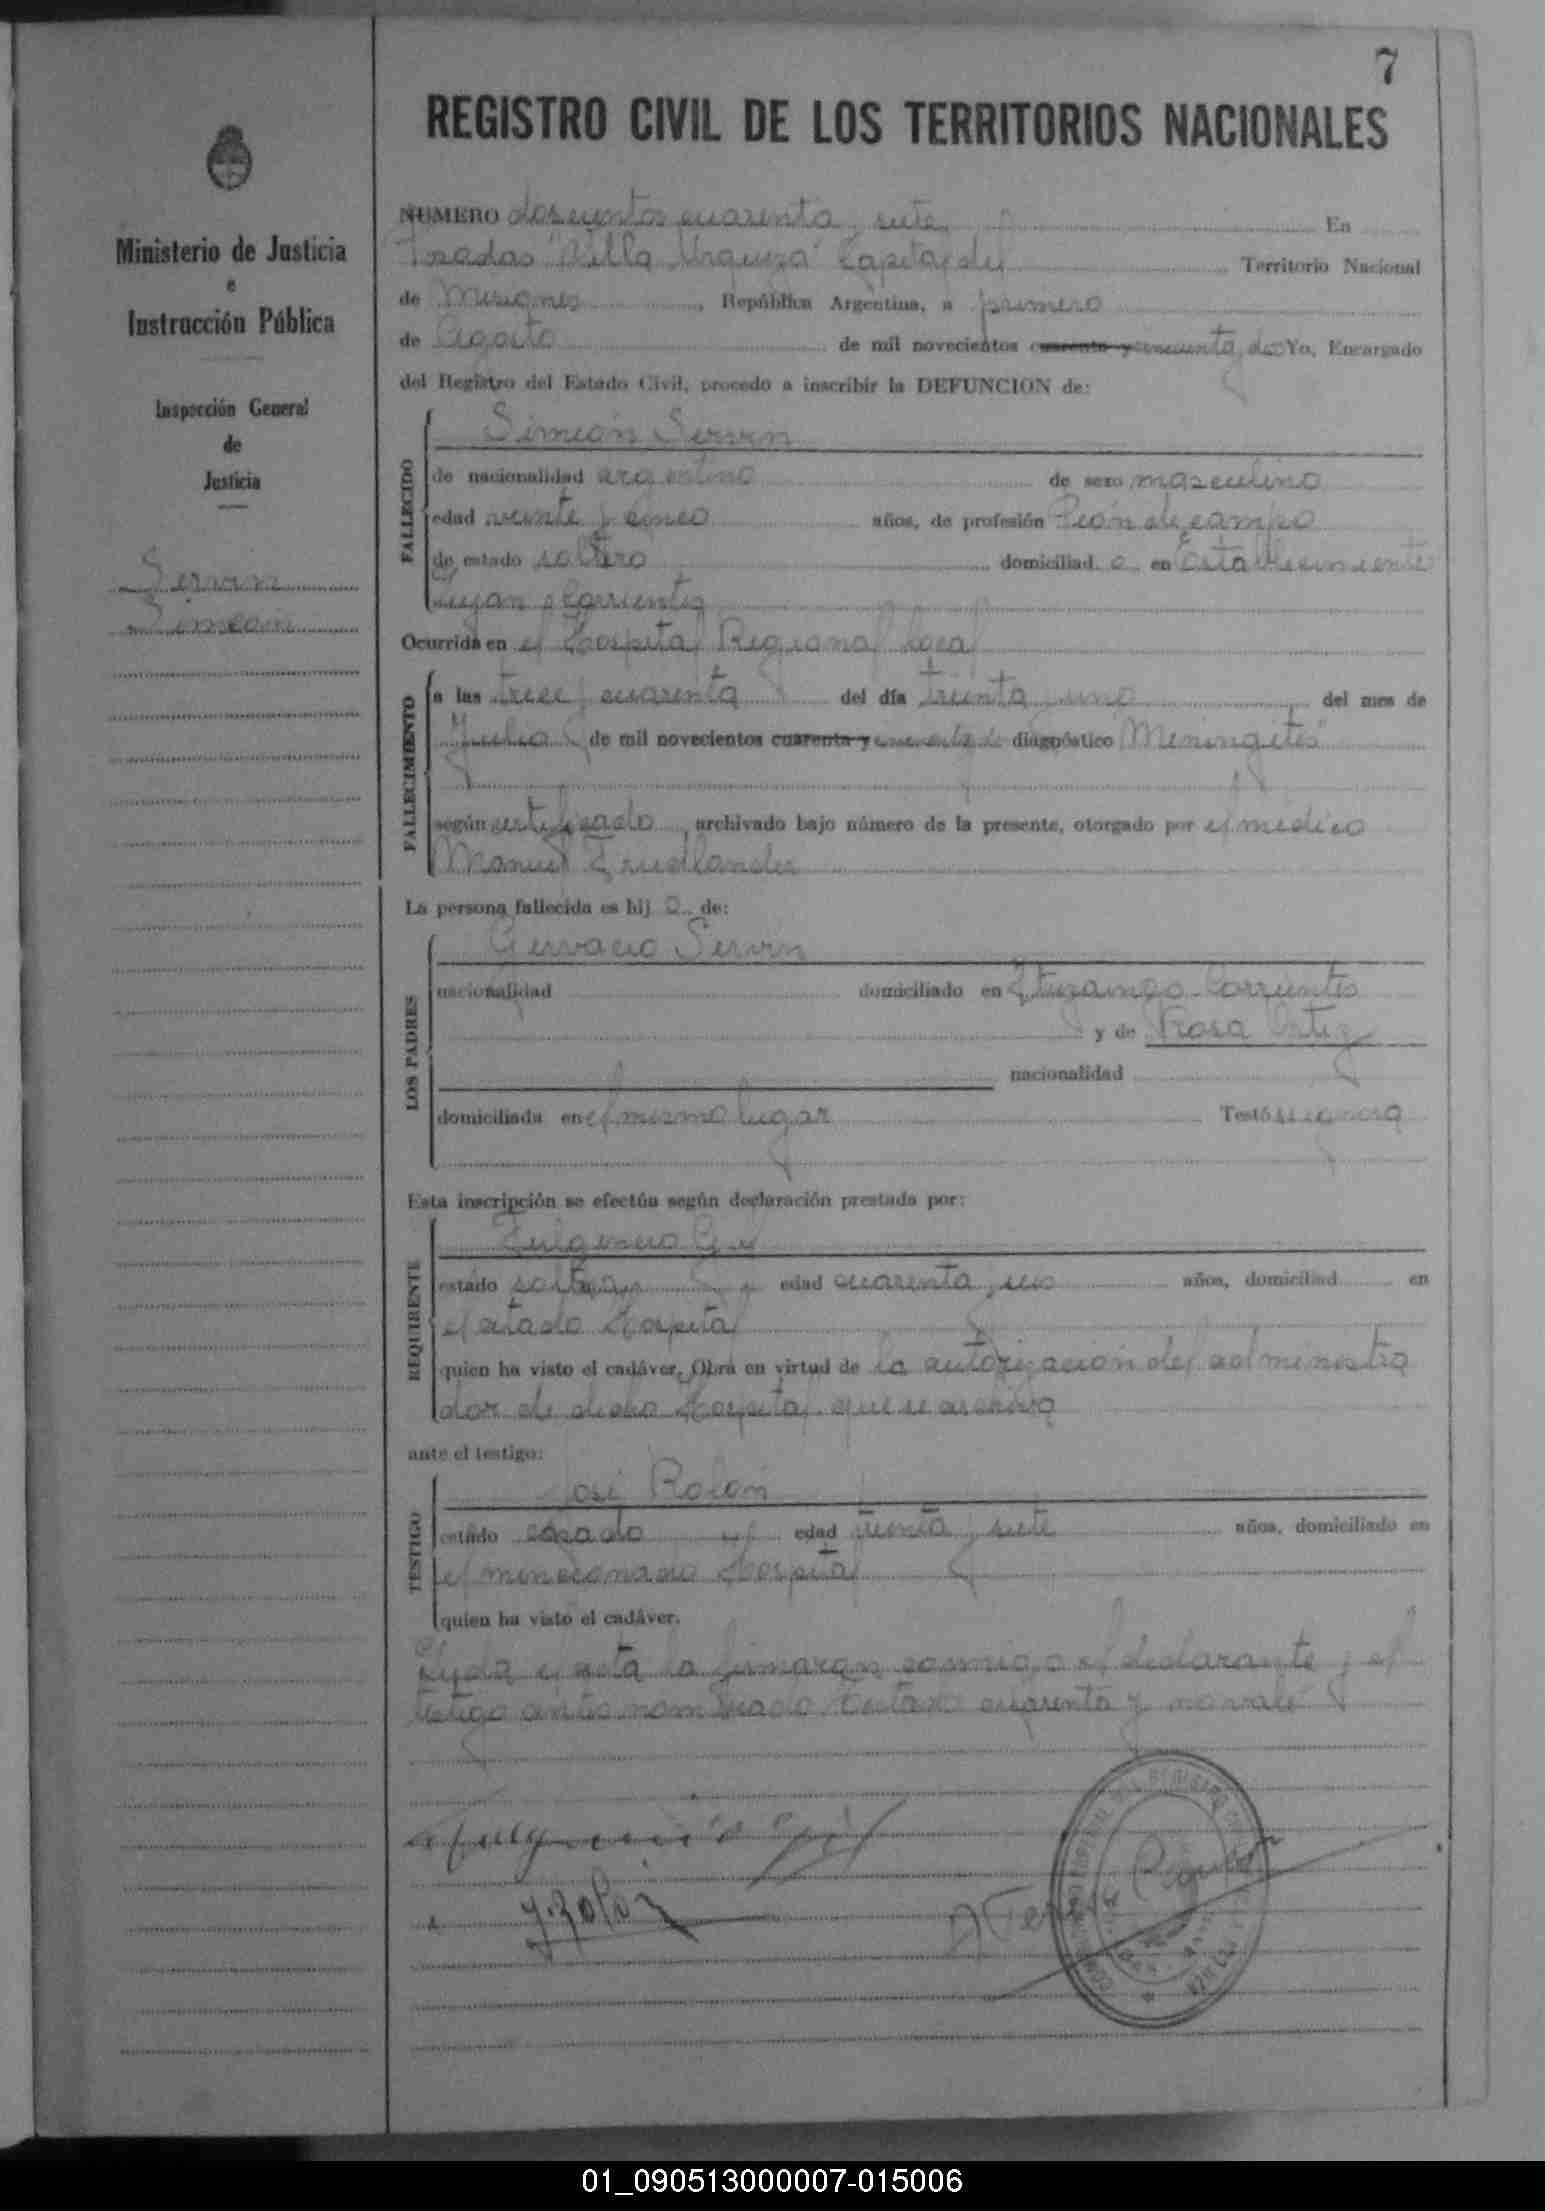 7
REGISTRO CIVIL DE LOS TERRITORIOS NACIONALES
Ministerio de Justicia
e
Instrucción Pública
Inspección General
de
Justicia
Servin
Simeón
NUMERO doscientos cuarenta y siete En
Posadas "Villa Urquiza" Capital del Territorio Nacional
de Misiones, República Argentina, a primero
de Agosto de mil novecientos cuarenta y cincuenta y dos Yo, Encargado
del Registro del Estado Civil, procedo a inscribir la DEFUNCION de:
FALLECIDO
Simeón Servin
de nacionalidad argentino de sexo masculino
edad veinte y cinco años, de profesión Peón de campo
de estado soltero domiciliad o en Establecimiento
Corrientes
Ocurrida en el Hospital Regional local
FALLECIMIENTO
a las trece y cuarenta del día treinta y uno del mes de
Julio de mil novecientos cuarenta y cincuenta y dos diagnóstico "Meningitis"
según certificado, archivado bajo número de la presente, otorgado por el médico
Manuel Friedlander
La persona fallecida es hij o de:
LOS PADRES
Gervacio Servin
nacionalidad domiciliado en Ituzaingo-Corrientes
y de Rosa Ortiz
nacionalidad
domiciliada en el mismo lugar Testó se ignora
Esta inscripción se efectúa según declaración prestada por:
REQUIRENTE
Fulgencio Gil
estado soltero edad cuarenta y años, domiciliad en
el citado Hospital
quien ha visto el cadáver. Obra en virtud de la autorización del administra
dor de dicho Hospital que se archiva
ante el testigo:
TESTIGO
José Rolón
estado casado edad treinta y siete años, domiciliado en
el mencionado Hospital
quien ha visto el cadáver.
Leyda el acta la firmaron conmigo el declarante y el
testigo antes nombrado Testado cuarenta y no vale
Fulgencio Gil
J. Rolón
01_090513000007-015006